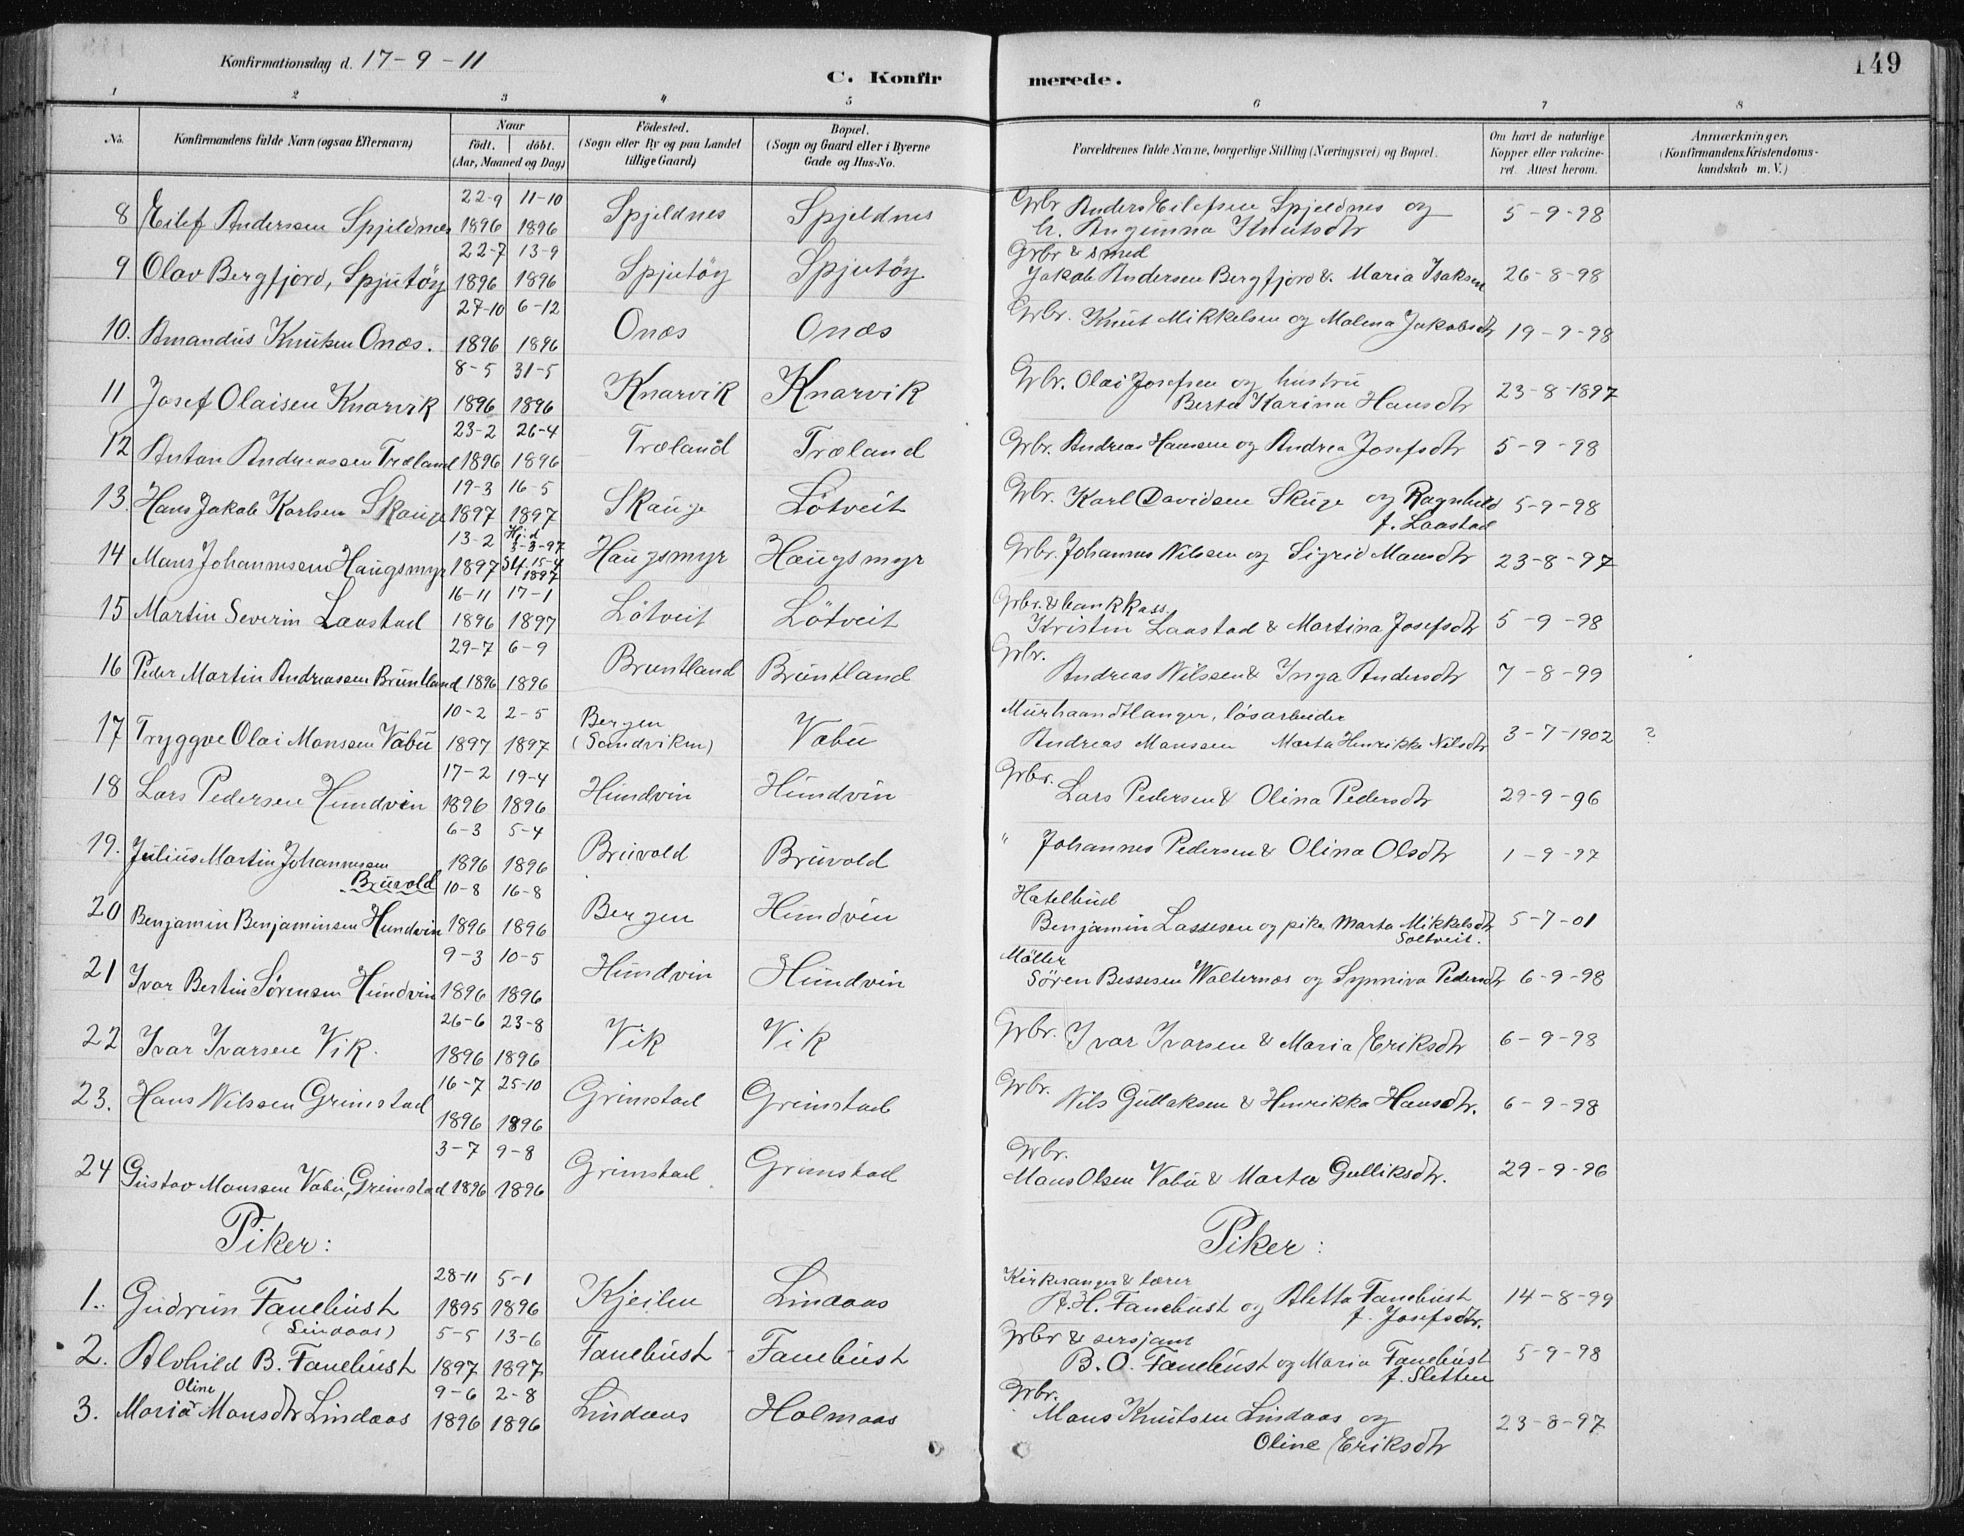 149
Konfirmationsdag d. 17-9-11
C. Konfir merede.
1 2 3 4 5 6 7 8
No. Konfirmandens fulde Navn (ogsaa Efternavn) Naar födt. döbt. (Aar, Maaned og Dag) Födested. (Sogn eller By og paa Landet tillige Gaard) Bopæl. (Sogn og Gaard eller i Byerne Gade og Hus-No. Forældrenes fulde Navne, borgerlige Stilling (Næringsvei) og Bopæl. Om havt de naturlige Kopper eller vakcineret. Attest herom. Anmærkninger. (Konfirmandens Kristendomskundskab m. V.)
22-9 11-10 Grbr Anders Eilefsen Spjeldnes og
8 Eilef Andersen Spjeldnes 1896 1896 Spjeldnes Spjeldnes h. Anginna Knutsdtr 5-9-98
22-7 13-9 Grbr & smed
9 Olav Bergfjord, Spjutöy 1896 1896 Spjutöy Spjutöy Jakob Andersen Bergfjord & Maria Isaksen 26-8-98
27-10 6-12
10. Amandus Knutsen Onæs. 1896 1896 Onæs Onæs Grbr. Knut Mikkelsen og Malena Jakobsdtr 19-9-98
8-5 31-5 Grbr. Olai Josefsen og hustru
11 Josef Olaisen Knarvik 1896 1896 Knarvik Knarvik Berta Karina Hansdtr 23-8-1897
23-2 26-4
12 Anton Andreassen Træland 1896 1896 Træland Træland Grbr. Andreas Hansen og Andrea Josefsdtr 5-9-98
19-3 16-5 Grbr. Karl Davidsen Skuge og Ragnhild
13. Hans Jakob Karlsen Skauge 1897 1897 Skauge Lötveit f. Laastad 5-9-98
13-2 Hj.d 3-3-97
14 Mans Johannesen Haugsmyr 1897 St 15-4 1897 Haugsmyr Haugsmyr Grbr. Johannes Nilsen og Sigrid Mansdtr 23-8-97
16-11 17-1 Grbr. & bankkass.
15 Martin Severin Laastad 1896 1897 Lötveit Lötveit Kristin Laastad & Martina Josefsdtr 5-9-98
29-7 6-9 Grbr.
16 Peder Martin Andreassen Bruntland 1896 1896 Bruntland Bruntland Andreas Nilssen & Inga Andersdtr 7-8-99
10-2 2-5 Bergen Murhaandtlanger, lösarbeider
17 Tryggve Olai Monsen Vabu 1897 1897 (Sandviken) Vabu Andreas Monssen Marta Henrikke Nilsdtr 3-7-1902 ?
17-2 19-4 Grbr.
18 Lars Pedersen Hundvin 1896 1896 Hundvin Hundvin Lars Pedersen & Olina Pedersdtr 29-9-96
6-3 5-4
19. Julius Martin Johannesen 1896 1896 Bruvold Bruvold " Johannes Pedersen & Olina Olsdtr 1-9-97
Bruvold
10-8 16-8 Hatelbud
20 Benjamin Benjaminsen Hundvin 1896 1896 Bergen Hundvin Benjamin Lassesen og pike Marta Mikkelsdtr Soltveit. 5-7-01
9-3 10-5 Möller
21 Ivar Bertin Sørensen Hundvin 1896 1896 Hundvin Hundvin Søren Bessesen Walternæs og Synniva Pedersdtr 6-9-98
26-6 23-8
22 Ivar Ivarsen Vik. 1896 1896 Vik Vik Grbr. Ivar Ivarsen & Maria Eriksdtr 6-9-98
16-7 25-10
23. Hans Nilssen Grimstad 1896 1896 Grimstad Grimstad Grbr. Nils Gullaksen & Henrikka Hansdtr. 6-9-98
3-7 9-8 Grbr.
24 Gustav Monssen Vabu, Grimstad 1896 1896 Grimstad Grimstad Mons Olsen Vabu & Marta Gulliksdtr. 29-9-96
Piker: Piker:
28-11 5-1 Kirkesanger & lærer
1. Gudrun Fanebust 1895 1896 Kjeilen Lindaas A.H. Fanebust og Aletta Fanebust 14-8-99
(Lindaas) f. Josefsdtr.
5-5 13-6 Grbr & sersjant
2. Alvhild B. Fanebust 1897 1897 Fanebust Fanebust B. O. Fanebust og Maria Fanebust 5-9-98
f. Sletten
Oline 9-6 2-8 Grbr.
3. Maria Monsdtr Lindaas 1896 1896 Lindaas Holmaas Mons Knutsen Lindaas og 23-8-97
Oline Eriksdtr